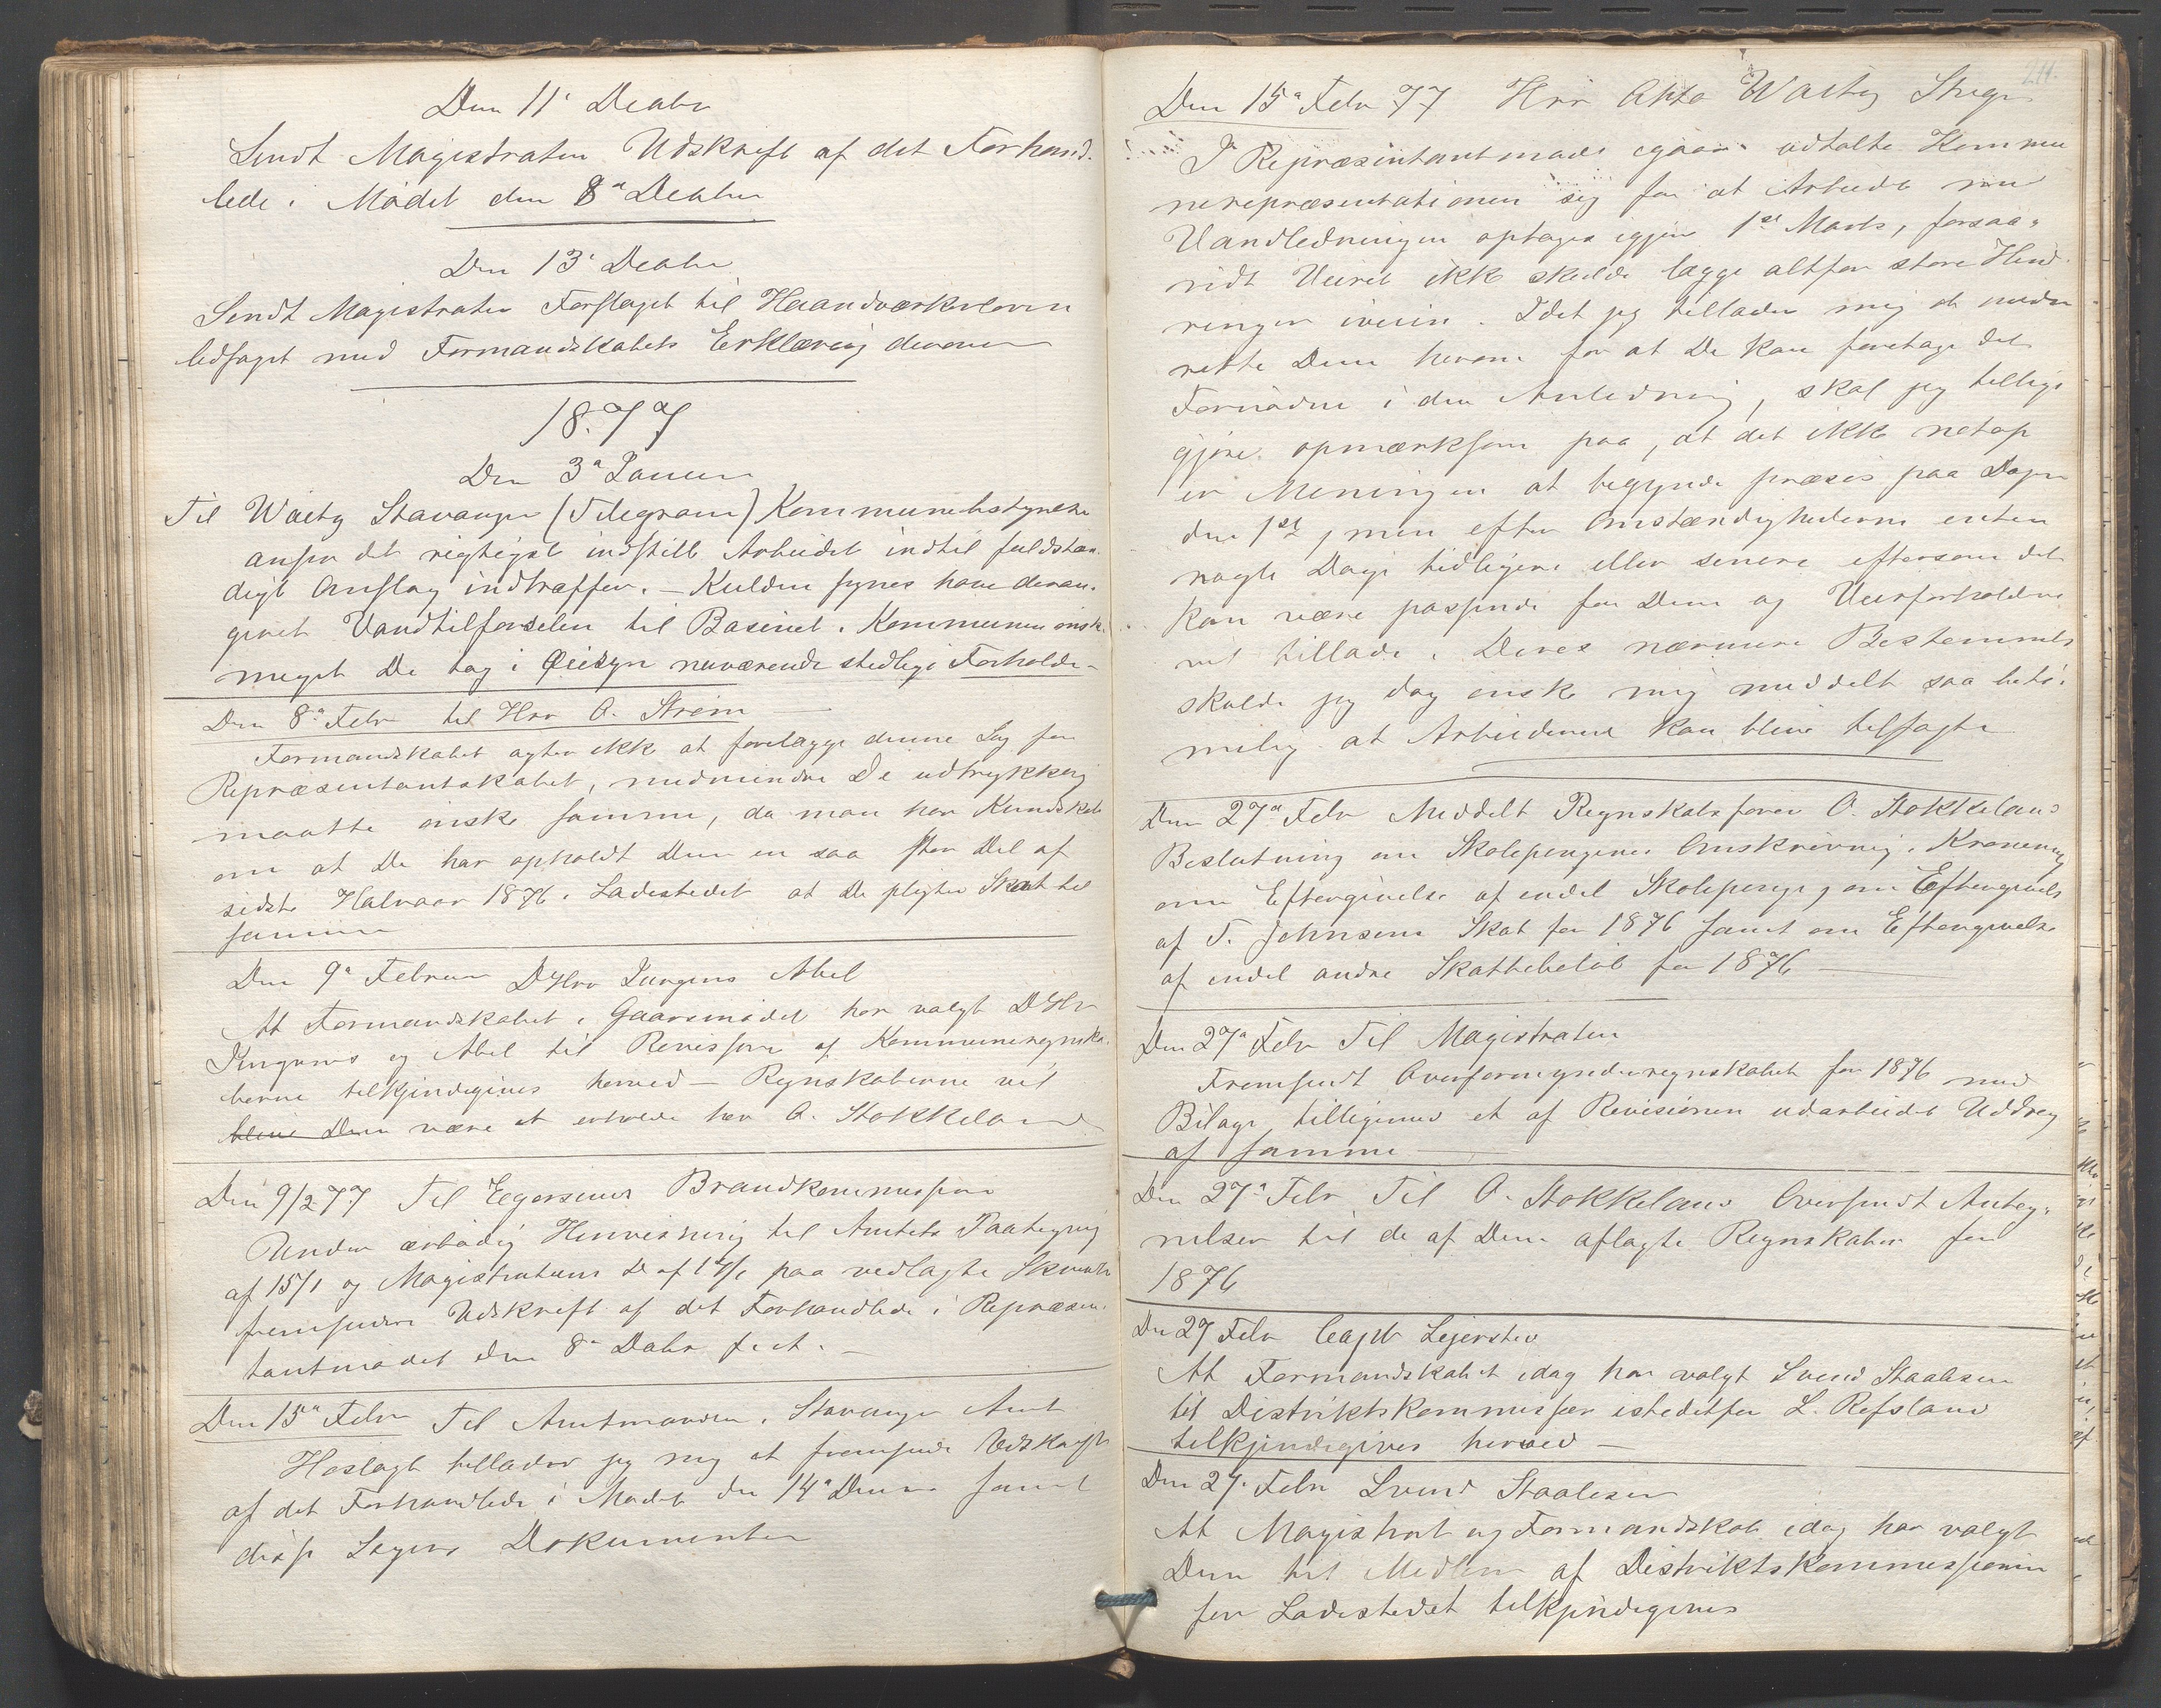 Den 11' Decbr
Sendt Magistraten Udskrift af det Forhand-
lede i Mødet den 8ª Decbr
Den 13' Decbr
Sendt Magistraten Forslaget til Haandværkerloven
ledsaget med Formandskabets Erklæring derover
1877
Den 3ª Januar
Til Waity Stavanger (Telegram) Kommunebestyrelsen
anser det rigtigst indstille Arbeidet indtil fuldstæn-
digt Omslag indtræffer. – Kulden synes have deran-
geret Vandtilførselen til Basinet. Kommunen ønsk.
meget De tog i Øiesyn nuværende stedlige Forholde –
Den 8ª Febr til Hrr O. Strøm
Formandskabet agter ikke at forelægge denne Sag for
Repræsentantskabet, medmindre De udtrykkelig
maatte ønske samme, da man har Kundskab
om at De har opholdt Dem en saa stor Del af
sidste Halvaar 1876 i Ladestedet at De pligter Skat til
samme
Den 9ª Februar DHrr Jurgens Abel
At Formandskabet i Gaarsmødet har valgt DHrr
Jurgens og Abel til Revisorer af Kommuneregnska-
berne tilkjendegives herved – Regnskaberne vil
blive Dem være at erholde hos O. Stokkeland
Den 9/2 77 Til Egersunds Brandkommission
Under ærbødig Henvisning til Amtets Paategning
af 15/1 og Magistratens D af 17/1 paa vedlagte Skrivelse
fremsendes Udskrift af det Forhandlede i Repræsen-
tantmødet den 8ª Dcbr f. A. –
Den 15ª Febr Til Amtmanden i Stavanger Amt
Hoslagt tillader jeg mig at fremsende Udskrift
af det Forhandlede i Mødet den 14ª Dennes samt
disse Sagers Dokumenter
211.
Den 15ª Febr 77 Hrr Waity
I Repræsentantmøde igaar udtalte Kommu
nerepræsentationen sig for at Arbeidet med
Vandledningen optages igjen 1st Marts, forsaa-
vidt Veiret ikke skulde lægge altfor store Hind-
ringer iveien. Idet jeg tillader mig at under-
rette Dem herom for at De kan foretage det
Fornødne i den Anledning, skal jeg tillige
gjøre opmærksom paa, at det ikke netop
er Meningen at begynde præcis paa Dagen
den 1st, men efter Omstændighederne enten
nogle Dage tidligere eller senere eftersom det
kan være passende for Dem og Veirforholdene
vil tillade. Deres nærmere Bestemmelse
skulde jeg dog ønske mig meddelt saa beti-
melig at Arbeiderne kan blive tilsagte
Den 27ª Febr Meddelt Regnskabsfører O. Stokkeland
Beslutning om Skolepengenes Omskrivning i Kronemynt
om Eftergivelse af endel Skolepenge, om Eftergivelse
af T. Johnsens Skat for 1876 samt om Eftergivelse
af endel andre Skattebeløb for 1876 –
Den 27ª Febr Til Magistraten
Fremsendt Overformynderregnskabet for 1876 med
Bilage, tilligemed et af Revisionen udarbeidet Uddrag
af samme –
Den 27ª Febr Til O. Stokkeland Oversendt Anteg-
nelser til de af Dem aflagte Regnskaber for
1876
Den 27 Febr Capt Lejersted
At Formandskabet idag har valgt Svend Staalesen
til Distriktskommissær istedetfor L. Refsland
tilkjendegives herved –
Den 27. Febr Svend Staalesen
At Magistrat og Formandskab idag har valgt
Dem til Medlem af Distriktskommissionen
for Ladestedet tilkjendegives